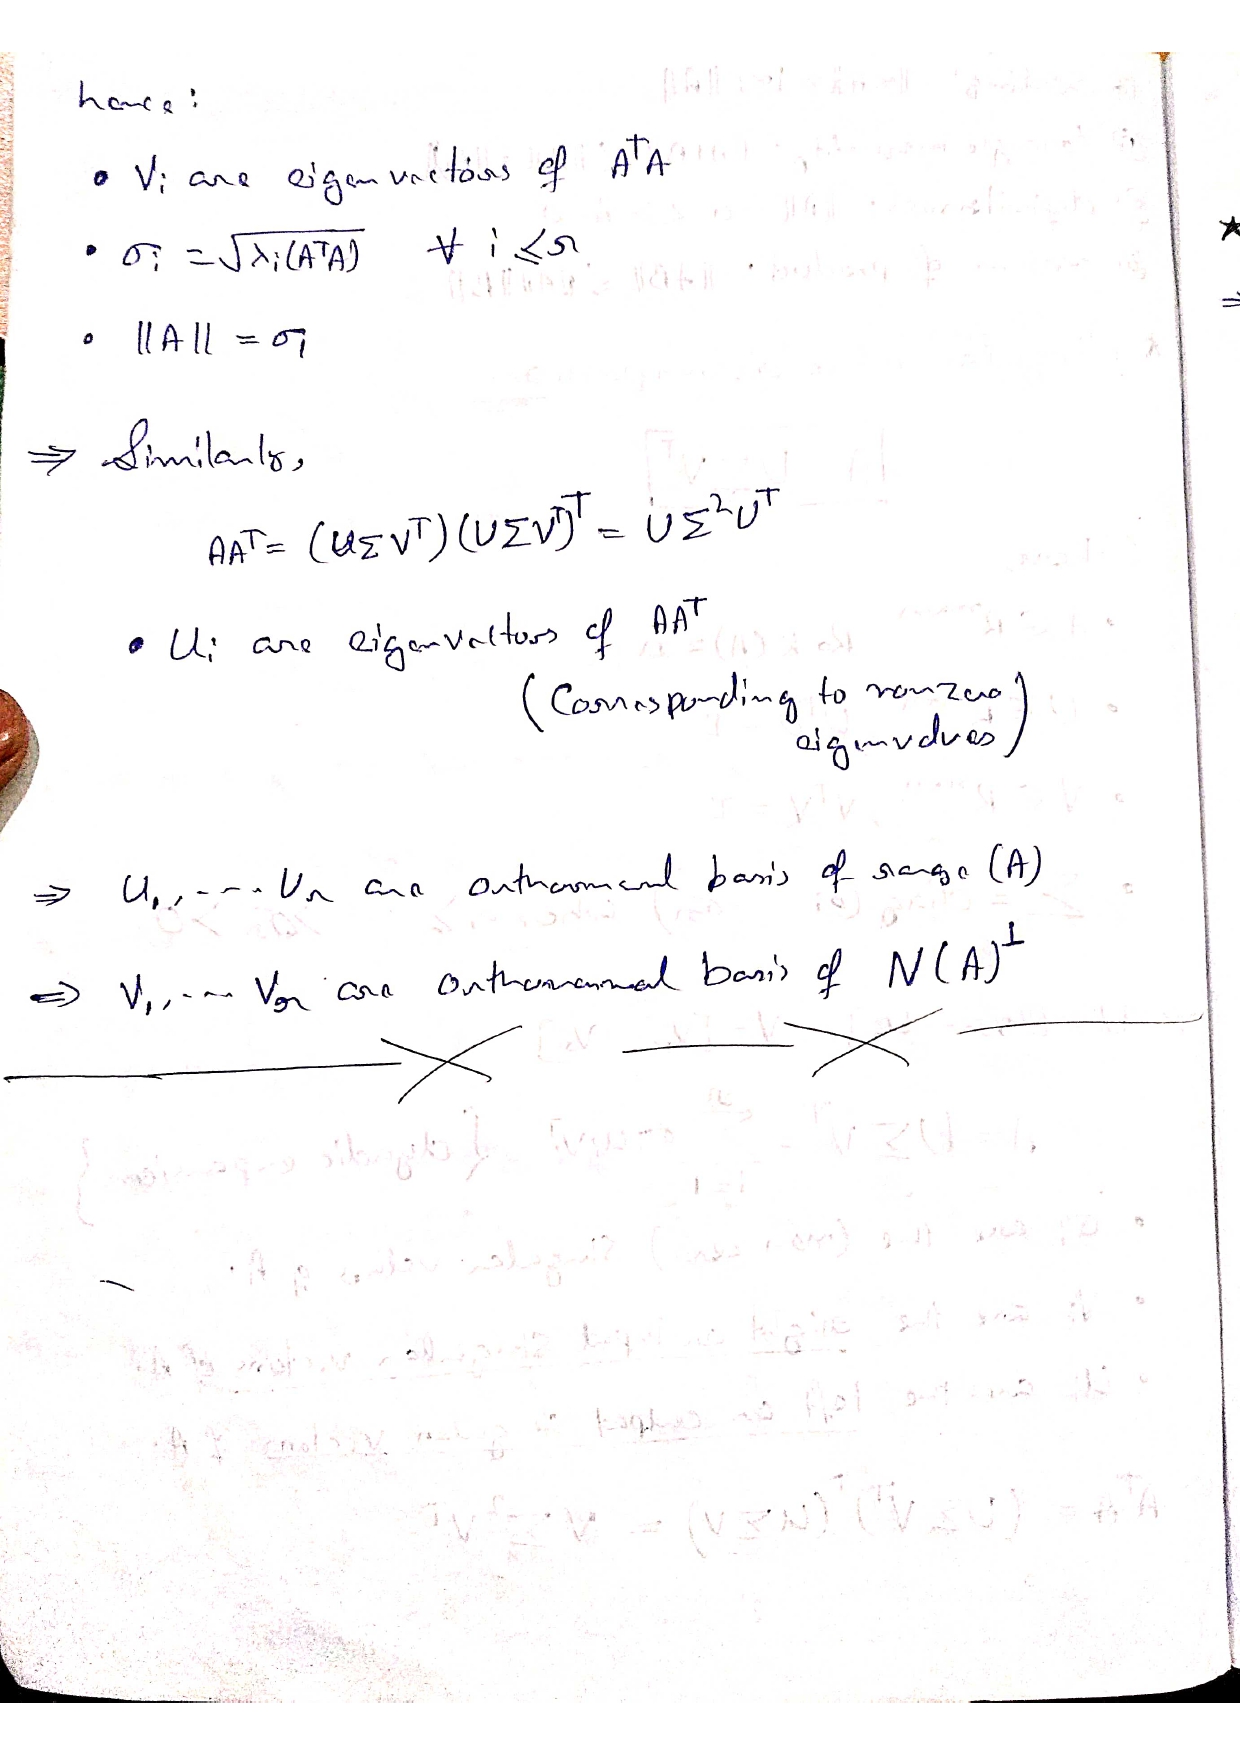 hence:
• Vᵢ are eigenvectors of AᵀA
• σᵢ = √λᵢ(AᵀA) ∀ i ≤ r
• ||A|| = σ₁
⇒ Similarly,
AAᵀ = (UΣVᵀ)(UΣVᵀ)ᵀ = UΣ²Uᵀ
• Uᵢ are eigenvectors of AAᵀ
(Corresponding to nonzero
eigenvalues)
⇒ U₁, ---- Uᵣ are orthonormal basis of range (A)
⇒ V₁, --- Vᵣ are orthonormal basis of N(A)⊥